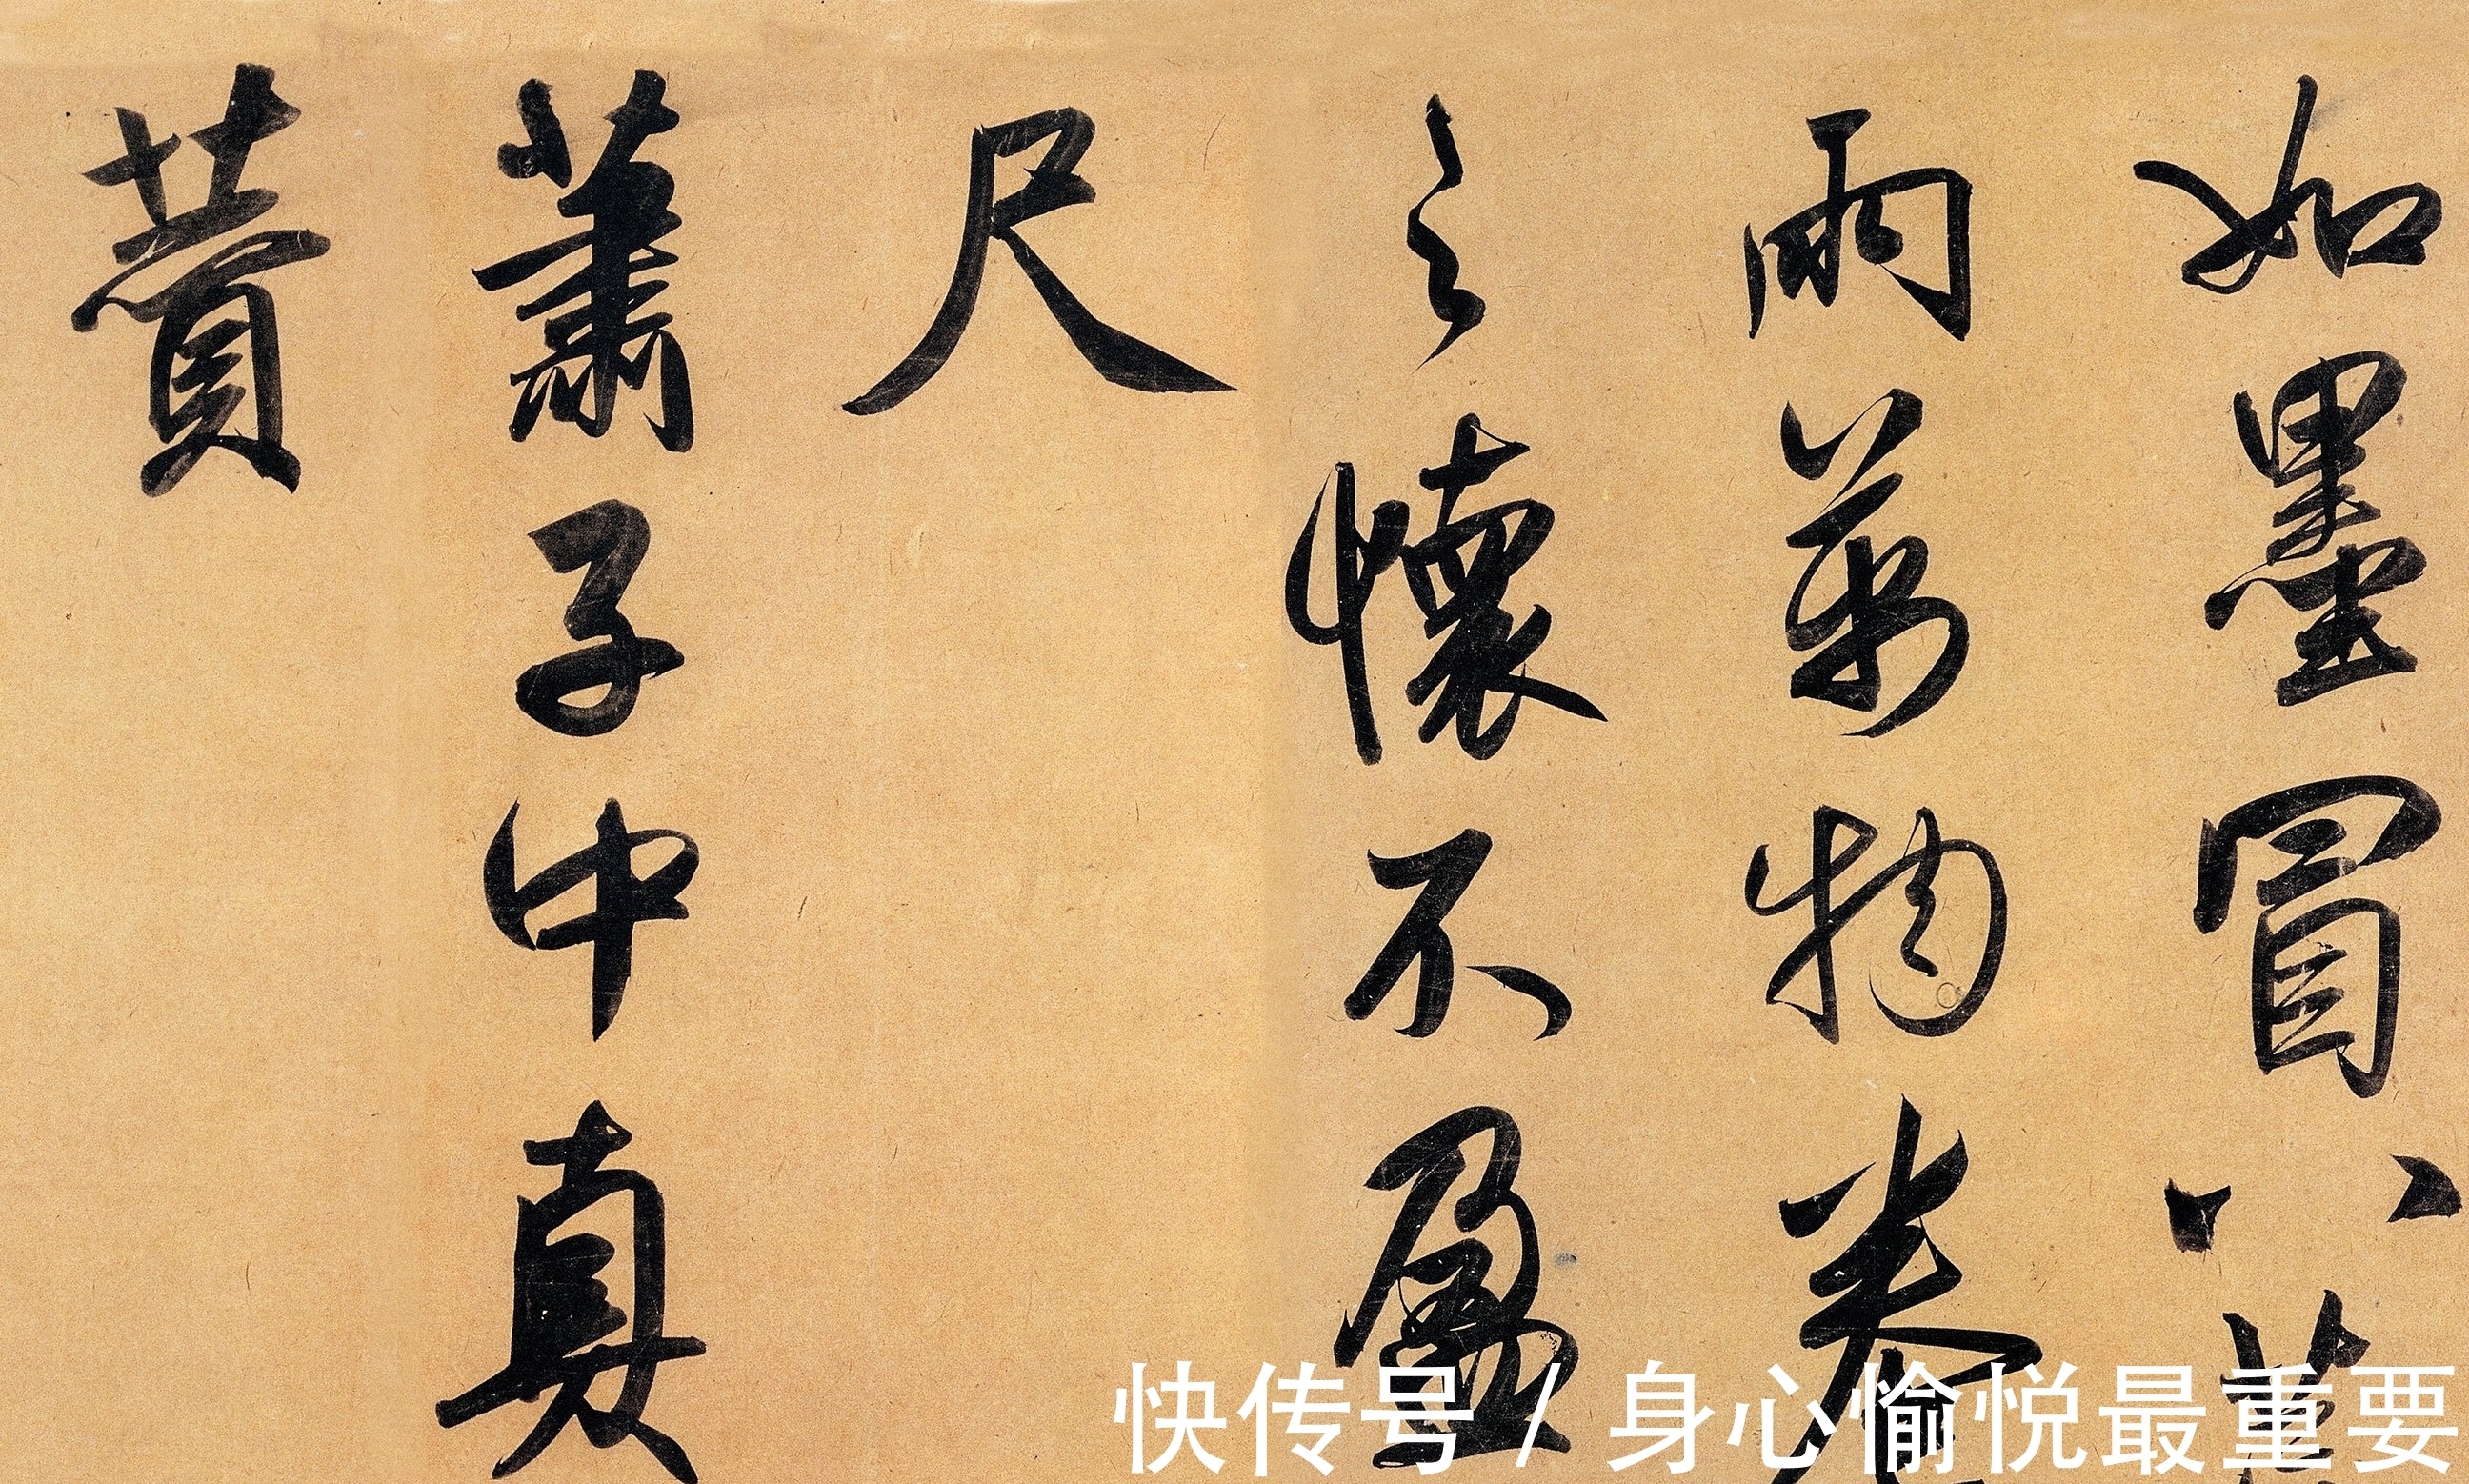 如墨冒八
雨萬物卷
之懷不盈
尺
蕭子中真
贊
快传号 / 身心愉悦最重要